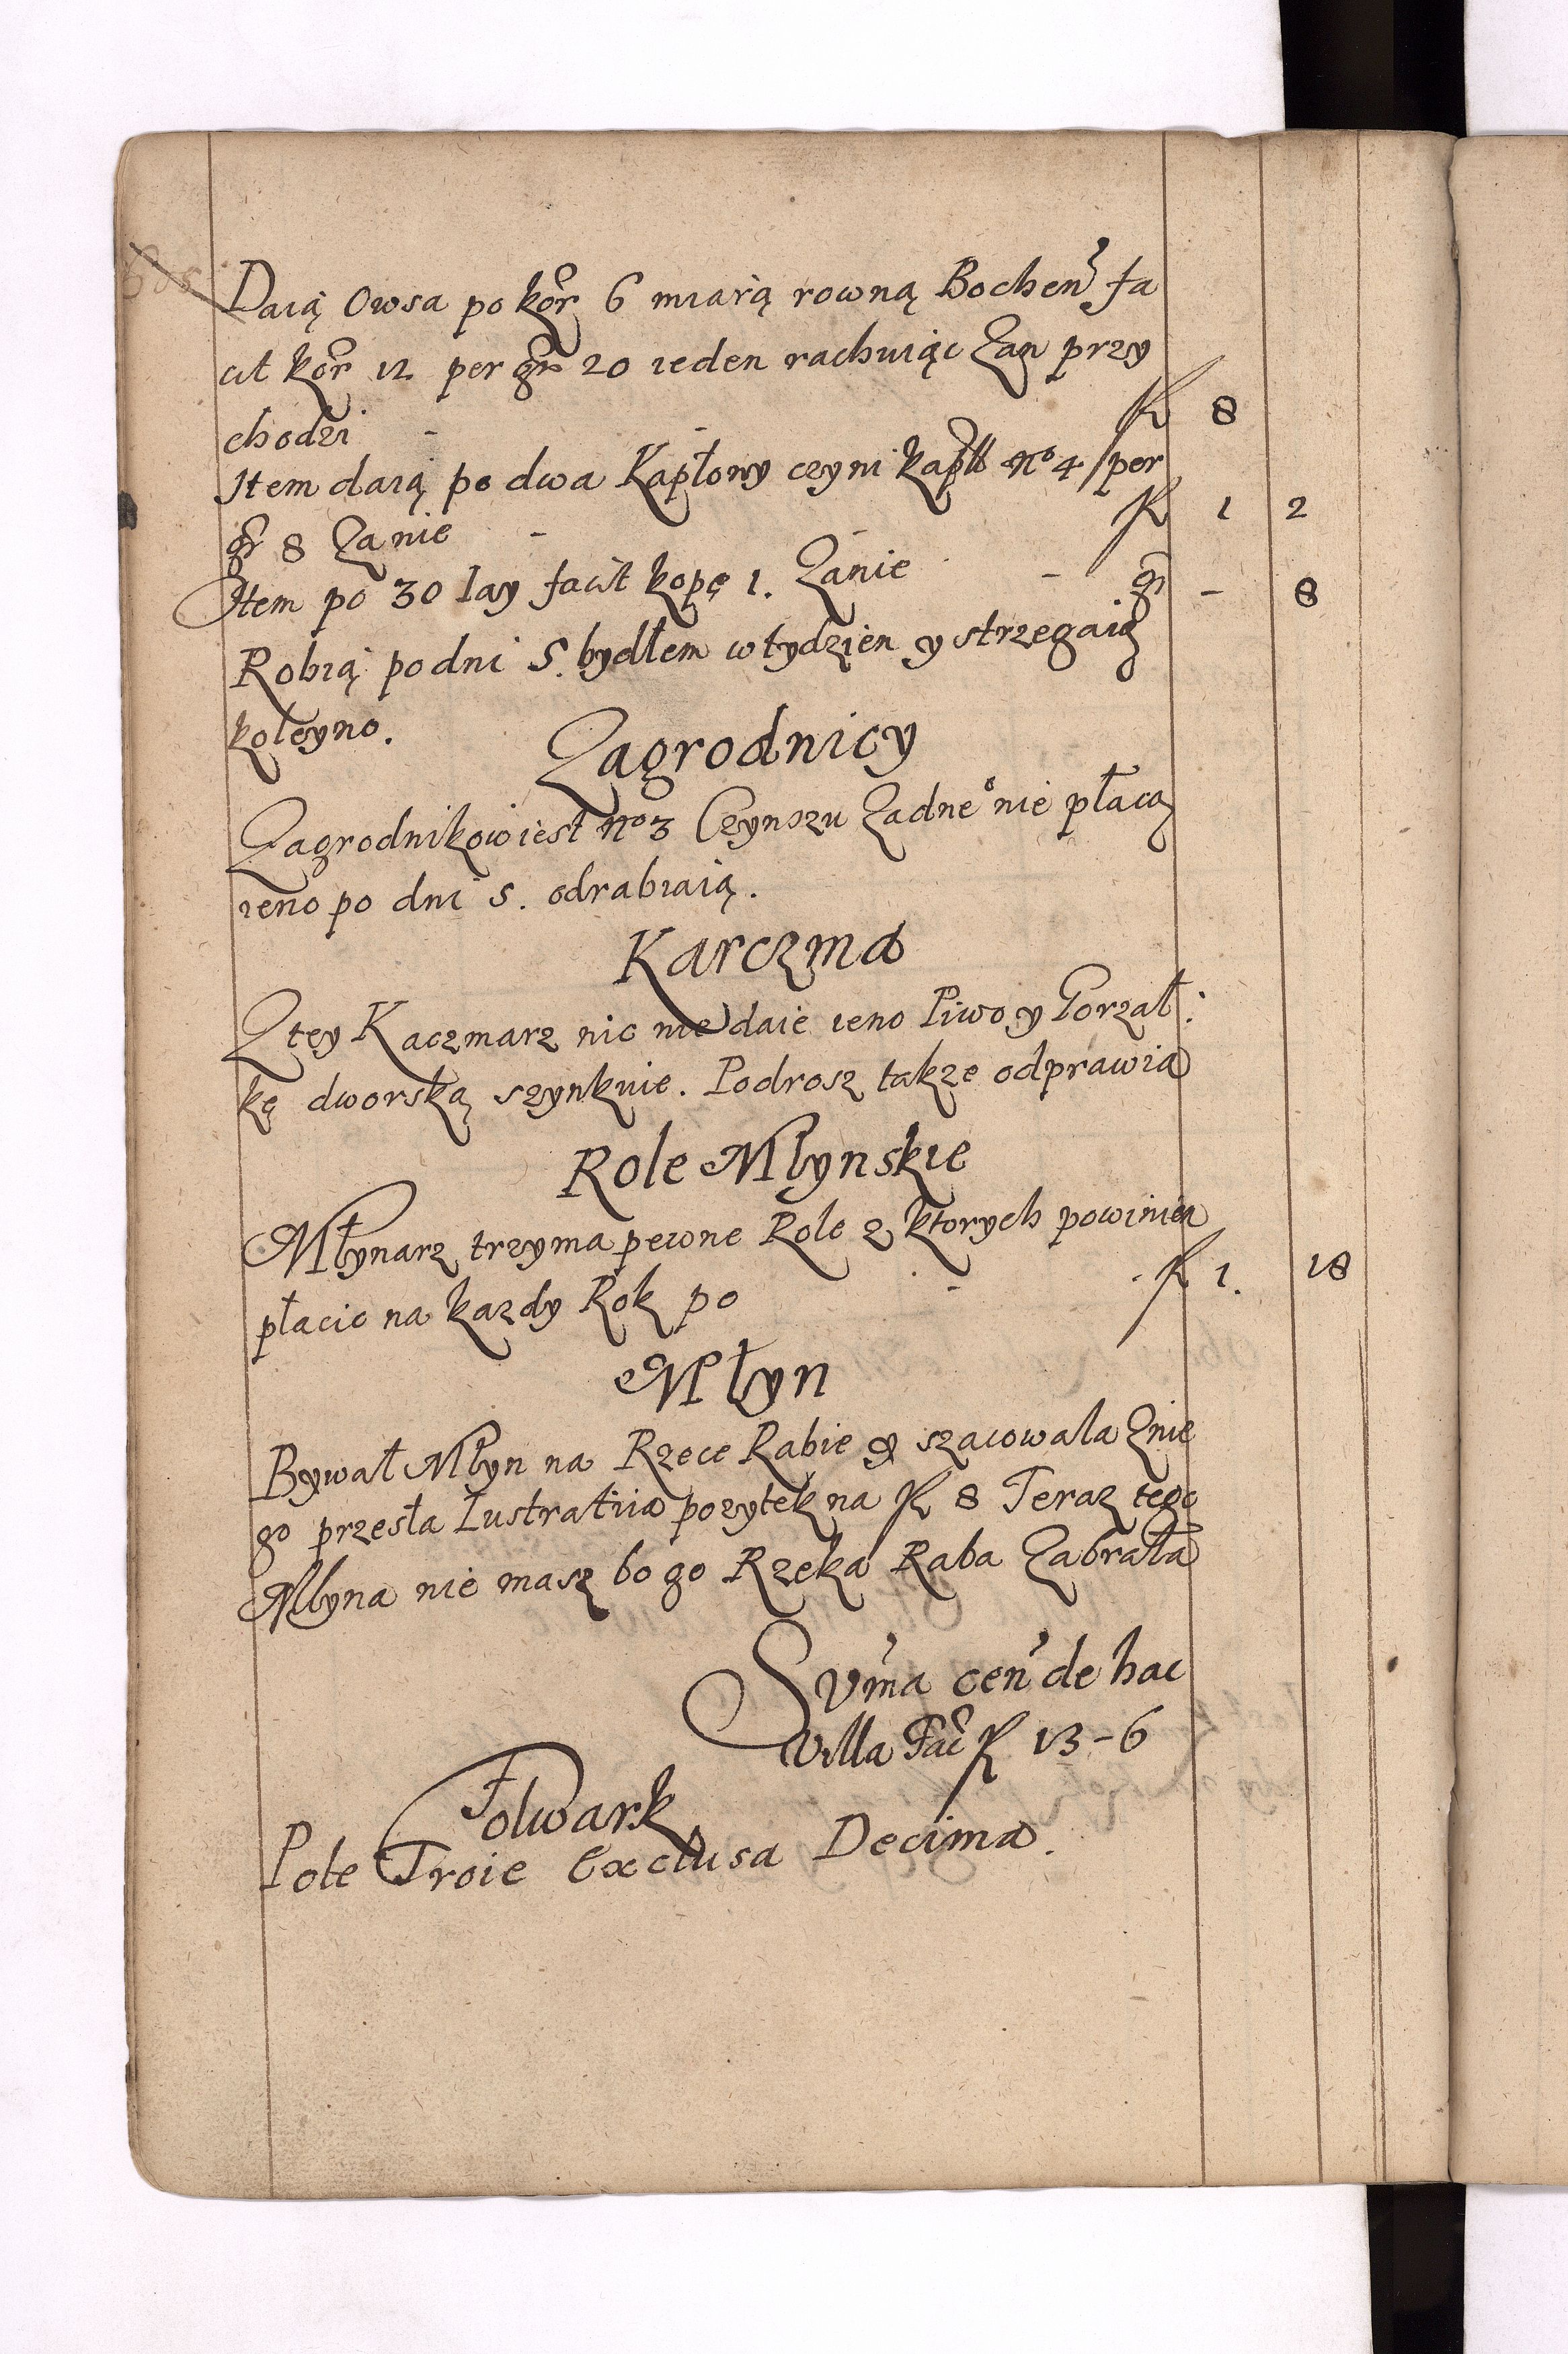 Daią Owsa po kor 6 miarą rowną Bochen fa
cit kor 12 per gr 20 ieden rachuiąc Zań przy
chodzi - - fl 8
Item daią po dwa Kapłony czyni kapll No 4 per
gr 8 Za nie - - fl 1 2
Item po 30 Iay facit kopę 1. Zanie - gr - 8
Robią po dni 5. bydłem w tydzien y strzegaią
koleyno.
Zagrodnicy
Zagrodnikow iest No 3 Czynszu Zadneo nie płacą
ieno po dni 5. odrabiaią.
Karczma
Z tey Kaczmarz nic nie daie ieno Piwo y Gorzał:
kę dworską szynkuie. Podrosz takze odprawia
Role Młynskie
Młynarz trzyma pewne Role z ktorych powinien
płacic na kazdy Rok po - fl 1. 18
Młyn
Bywał Młyn na Rzece Rabie y szacowala Znie
go przesła Lustratiia pozytek na fl 8 Teraz tego
Młyna nie masz bo go Rzeka Raba Zabrała
Suma cen de hac
villa Fac fl 13 - 6
Folwark
Pole Troie Exclusa Decima.